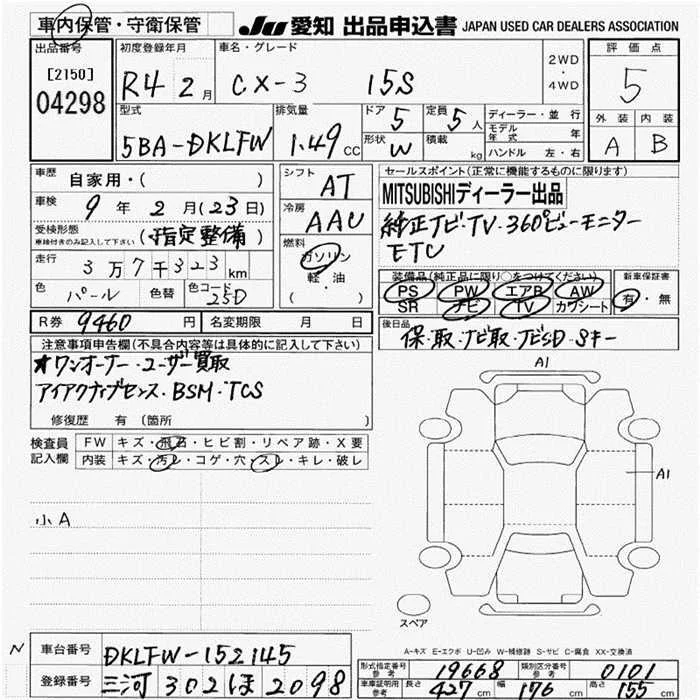 車内保管・守衛保管
JU 愛知 出品申込書 JAPAN USED CAR DEALERS ASSOCIATION
出品番号
[2150]
04298
初度登録年月
R4 2月
車名・グレード
CX-3 15S
2WD
・
4WD
評価点
5
外装 内装
A B
型式
5BA-DKLFW
排気量
1.49 CC
ドア 5
定員 5 人
形状 W
積載 kg
ディーラー・並行
モデル年式 年
ハンドル 左・右
車歴 自家用・( )
車検 9年 2月 (23日)
受検形態
車検付きのみ記入して下さい
(指定整備)
走行 3万7千323 km
色 パール 色替 色コード 25D
シフト AT
冷房 AAC
燃料
ガソリン
(軽・油)
セールスポイント(正常に機能するものに限ります)
MITSUBISHIディーラー出品
純正ナビ・TV・360°ビューモニター
ETC
装備品(純正品に限り○をつけてください)
PS PW エアB AW
SR ナビ TV カワシート
新車保証書
有・無
R券 9460 円 名変期限 月 日
後日品
保・取・ナビ取・ナビSD・Sキー
注意事項申告欄(不具合内容等は具体的に記入して下さい)
★ワンオーナー・ユーザー買取
アイアクティブセンス・BSM・TCS
修復歴 有(箇所 )
検査員
記入欄
FW キズ・飛石・ヒビ割・リペア跡・X要
内装 キズ・汚レ・コゲ・穴・スレ・キレ・破レ
小A
A1
A1
スペア
A-キズ E-エクボ U-凹み W-補修跡 S-サビ C-腐食 XX-交換済
N
車台番号 DKLFW-152145
登録番号 三河 302 ほ 2098
形式指定番号 参考 19668
類別区分番号 参考 0101
車庫証明用 参考 長さ 427 cm 幅 176 cm 高さ 155 cm